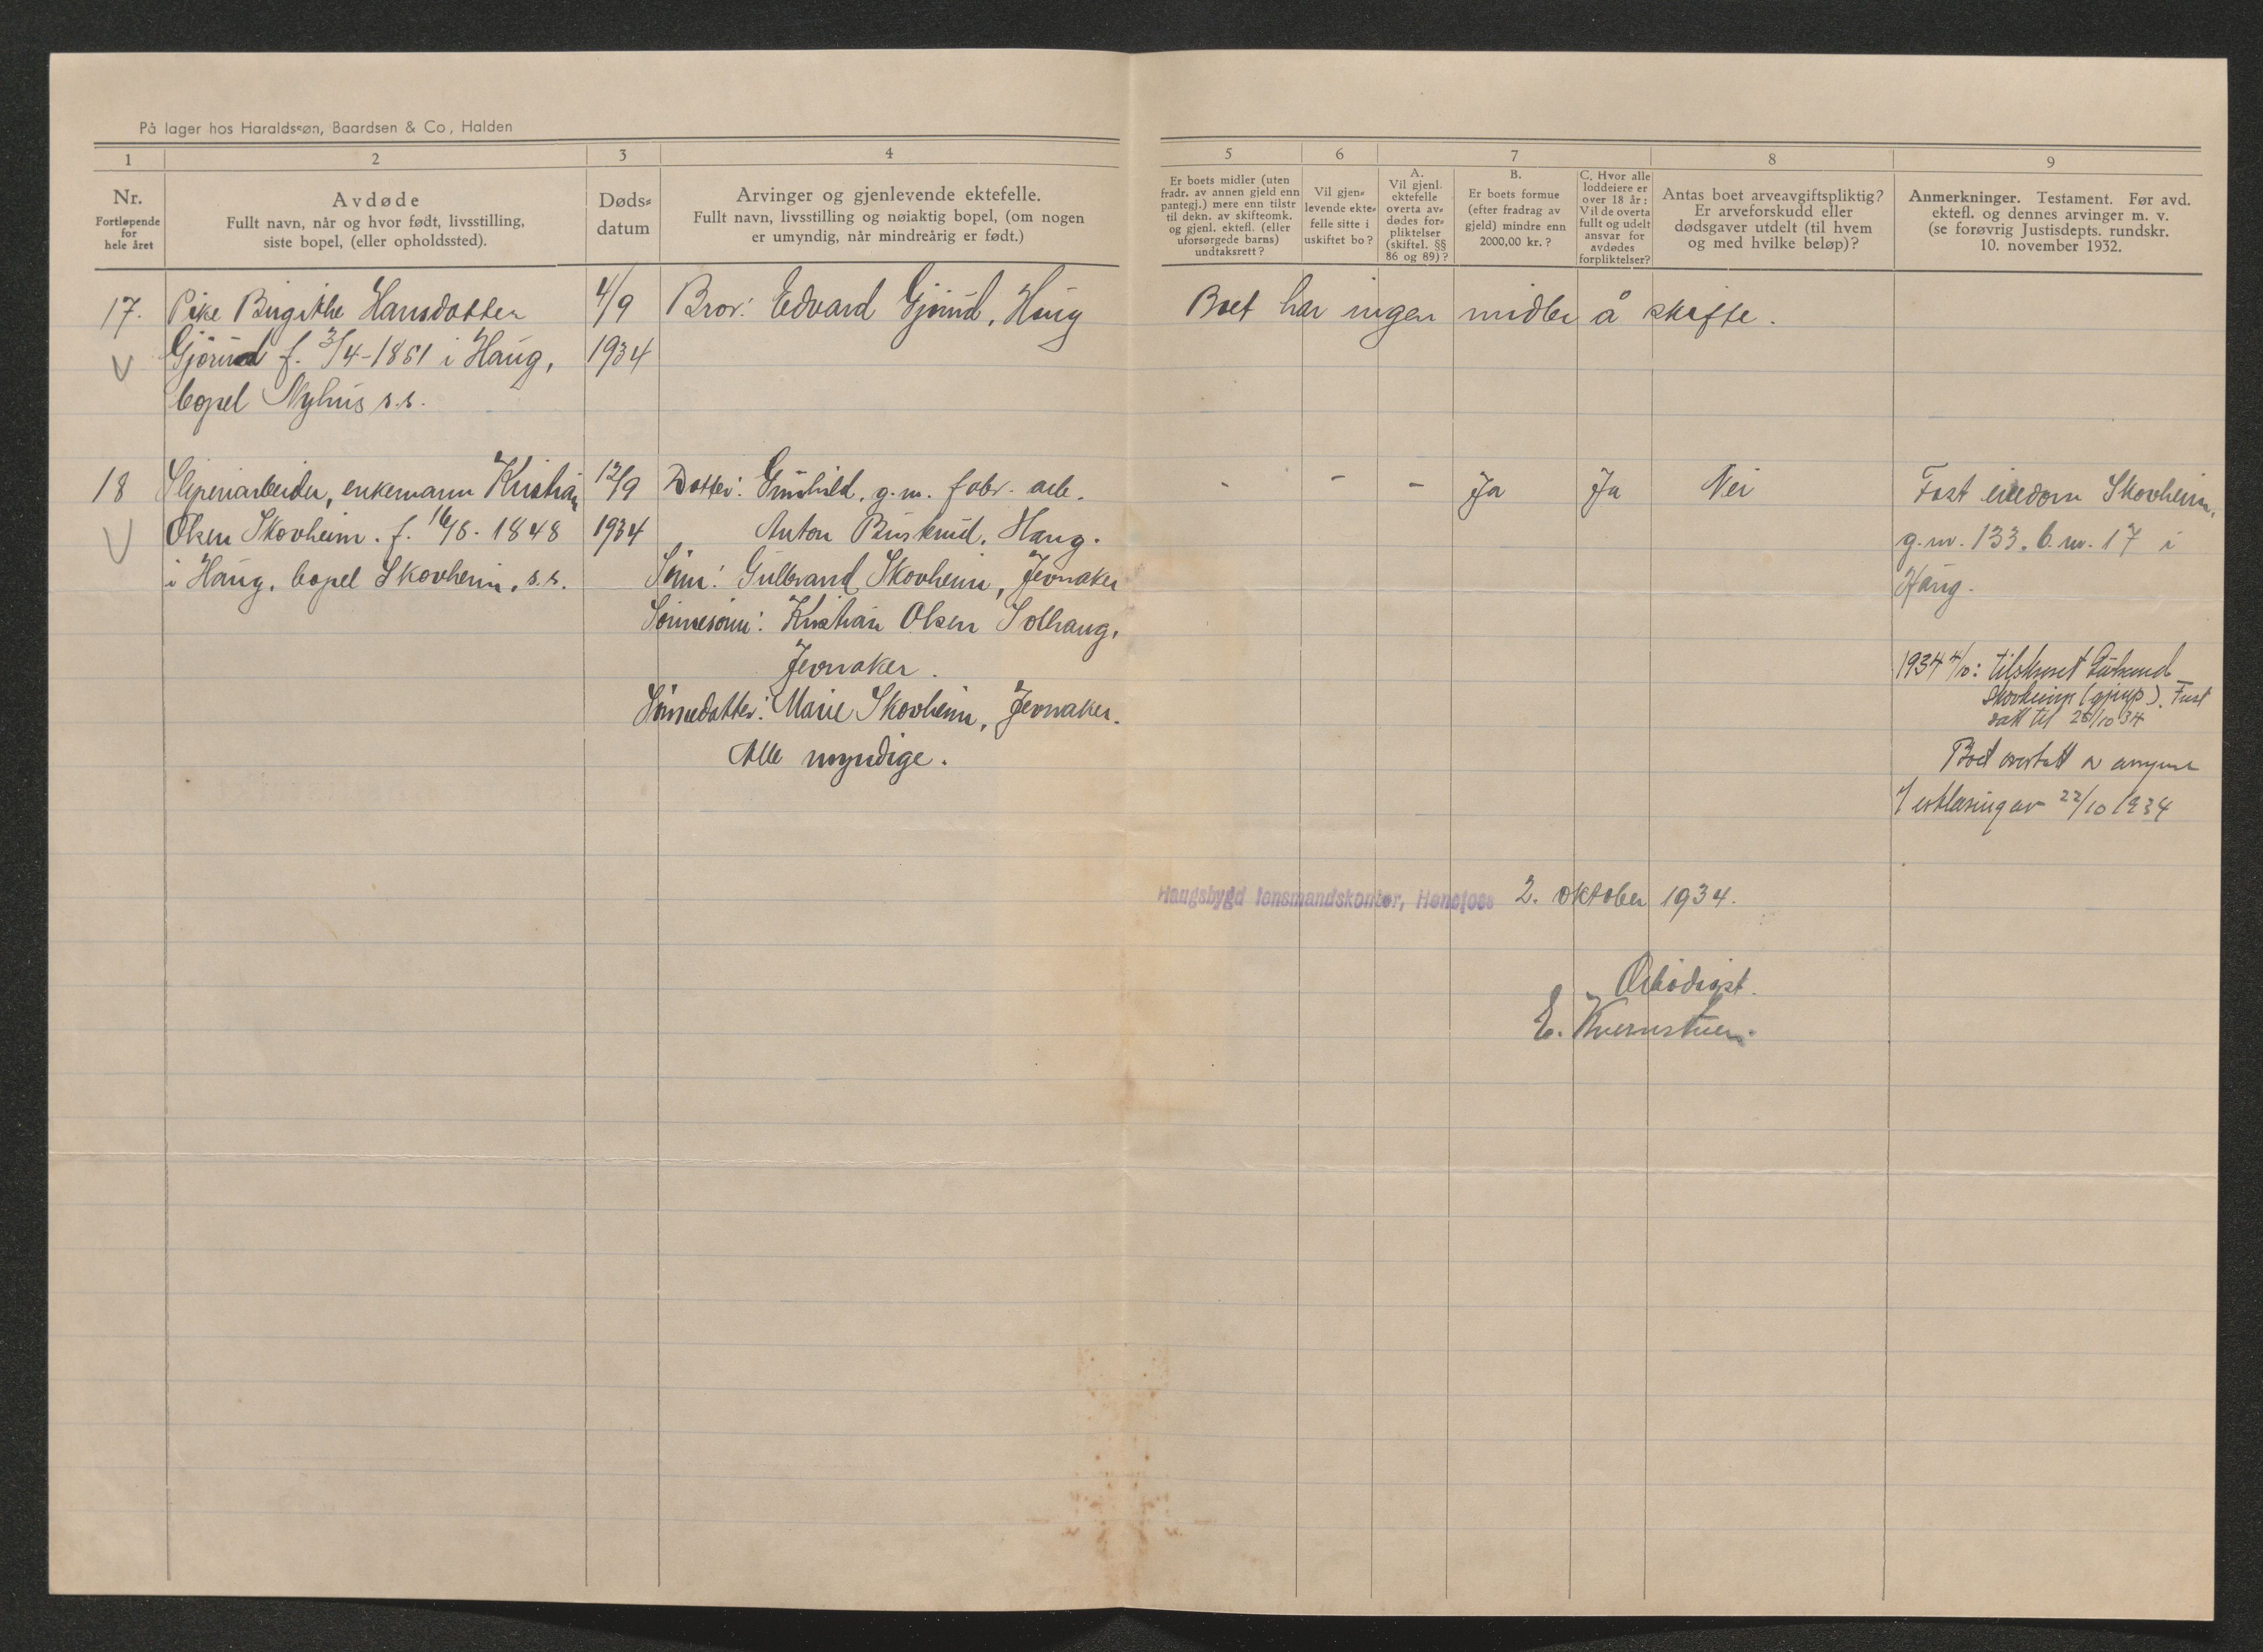 På lager hos Haraldssøn, Baardsen & Co, Halden
1 2 3 4 5 6 7 8 9
Nr.
Fortløpende
for
hele året
Avdøde
Fullt navn, når og hvor født, livsstilling,
siste bopel, (eller opholdssted).
Døds-
datum
Arvinger og gjenlevende ektefelle.
Fullt navn, livsstilling og nøiaktig bopel, (om nogen
er umyndig, når mindreårig er født.)
Er boets midler (uten
fradr. av annen gjeld enn
pantegj.) mere enn tilstr
til dekn. av skifteomk.
og gjenl. ektefl. (eller
uforsørgede barns)
undtaksrett?
Vil gjen-
levende ekte-
felle sitte i
uskiftet bo?
A.
Vil gjenl.
ektefelle
overta av-
dødes for-
pliktelser
(skiftel. §§
86 og 89)?
B.
Er boets formue
(efter fradrag av
gjeld) mindre enn
2000,00 kr.?
C. Hvor alle
loddeiere er
over 18 år:
Vil de overta
fullt og udelt
ansvar for
avdødes
forpliktelser?
Antas boet arveavgiftspliktig?
Er arveforskudd eller
dødsgaver utdelt (til hvem
og med hvilke beløp)?
Anmerkninger. Testament. Før avd.
ektefl. og dennes arvinger m. v.
(se forøvrig Justisdepts. rundskr.
10. november 1932.
17. Pike Birgithe Hansdatter 4/9 Bror: Edvard Gjørud, Haug Boet har ingen midler å skifte.
Gjørud f. 3/4-1851 i Haug, 1934
bopel Nyhus s.s.
18 Sliperiarbeider, enkemann Kristian 12/9 Datter: Gunhild, g.m. fabr. arb. - - - Ja Ja Nei Fast eiedom Skovheim,
Olsen Skovheim. f. 16/8. 1848 1934 Anton Buskrud, Haug. g.nr. 133. b.nr. 17 i
i Haug, bopel Skovheim, s.s. Sønn: Gulbrand Skovheim, Jevnaker Haug.
Sønnesønn: Kristian Olsen Solhaug,
Jevnaker.
1934 4/10: tilskrevet
Skovheim
satt til 25/10 34
Sønnedatter: Marie Skovheim, Jevnaker.
Alle myndige.
Boet overtatt av
erklæring av 22/10 1934
Haugsbygd lensmandskontor, Hønefoss 2. oktober 1934.
Ærbødigst.
E. Kvernstuen.